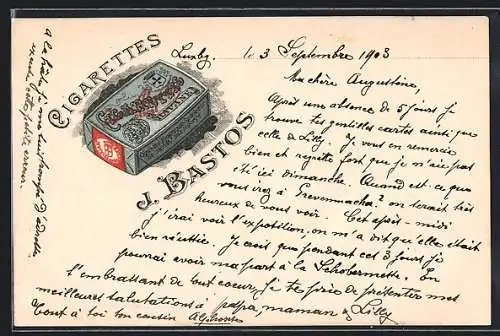 CIGARETTES
J. BASTOS
Luxbg. le 3 Septembre 1903
Ma chère Augustine,
Après une absence de 5 jours je
trouve tes gentilles cartes ainsi que
celle de Lilly. Je vous en remercie
bien et regrette fort que je n'aie pas
été ici dimanche. Quand est-ce que
vous irez à Grevenmacher? on serait très
heureux de vous voir. Cet après-midi
j'irai voir l'exposition, on m'a dit qu'elle était
bien réussie. Je crois que pendant ces 3 jours je
pourrai avoir ma part à la Schobermesse. En
t'embrassant de tout coeur, je te prie de présenter mes
meilleures salutations à papa, maman & Lilly
Tout à toi ton cousin Alphonse
A la hâte je me suis trompé d'adresse